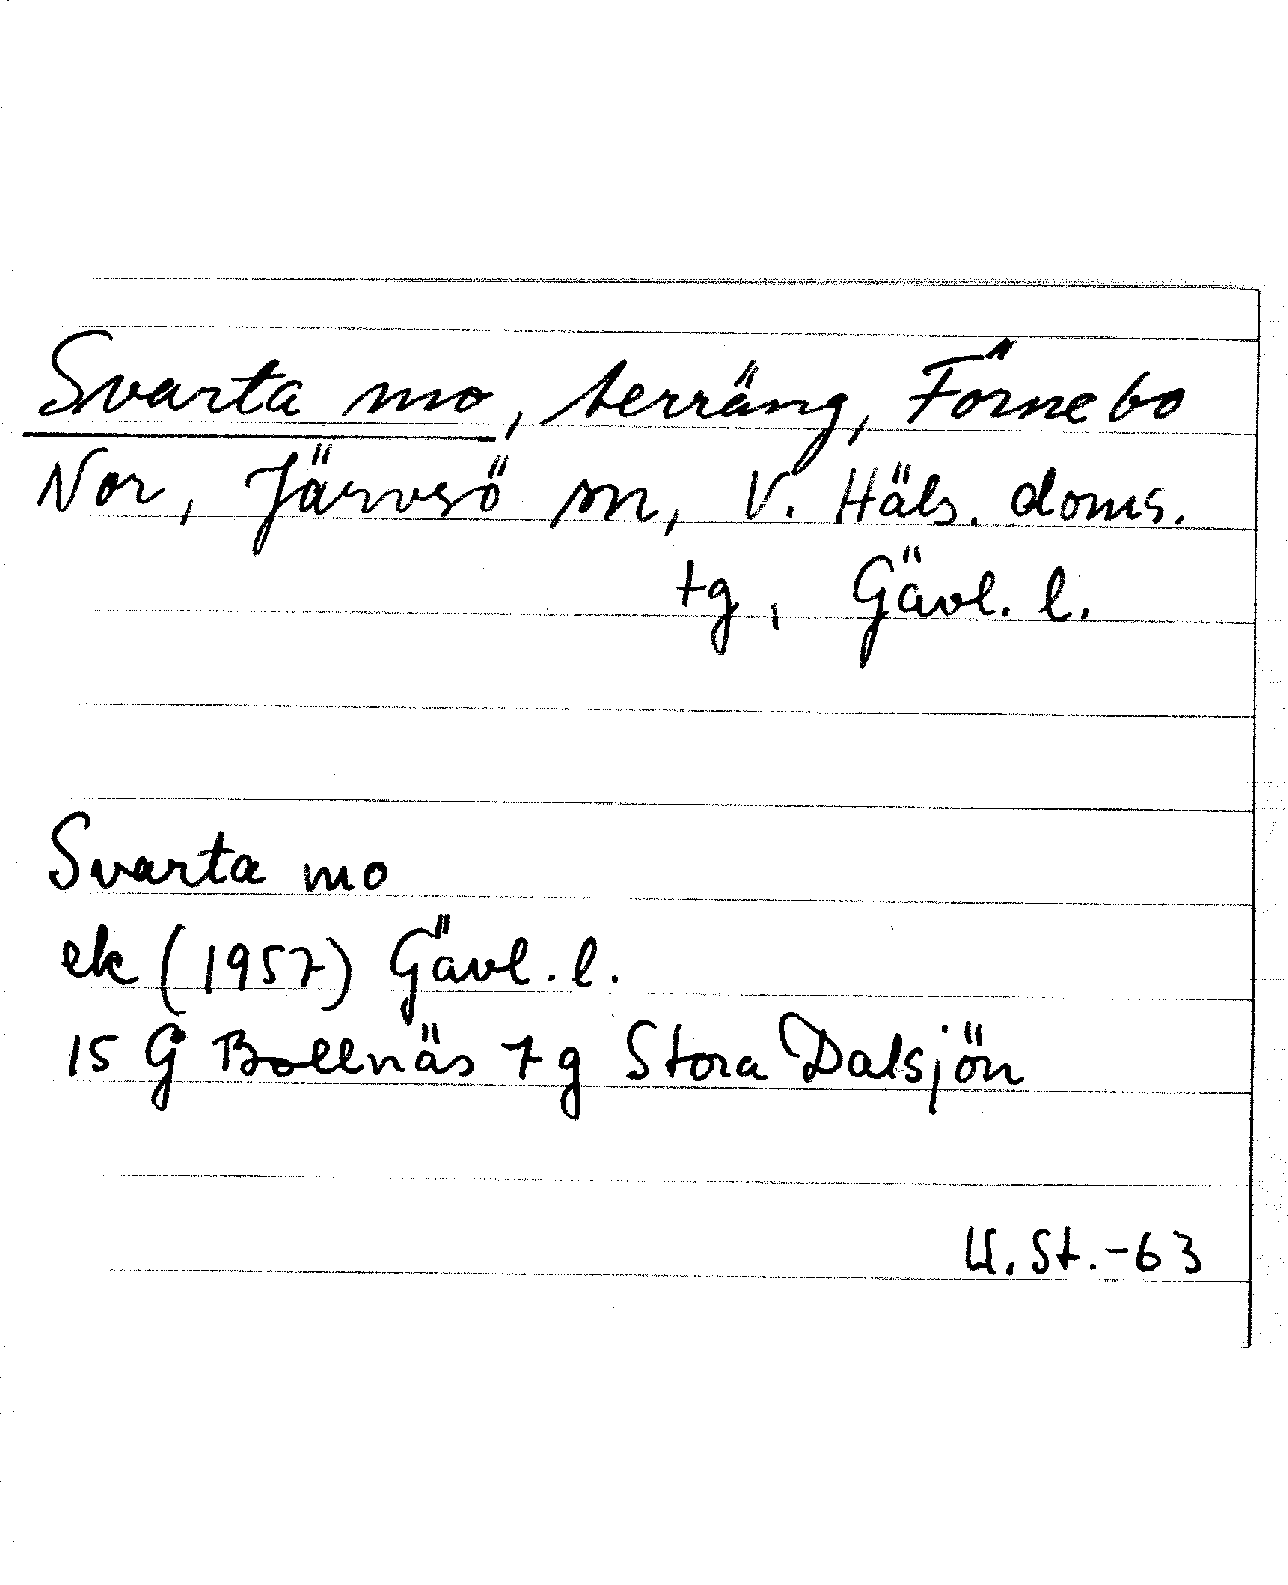 Svarta mo, terräng, Förnebo
Nor, Järvsö sn, V. Häls. doms.
tg, Gävl. l.
Svarta mo
ek (1957) Gävl. l.
15 G Bollnäs 7 g Stora Dalsjön
U. St. -63